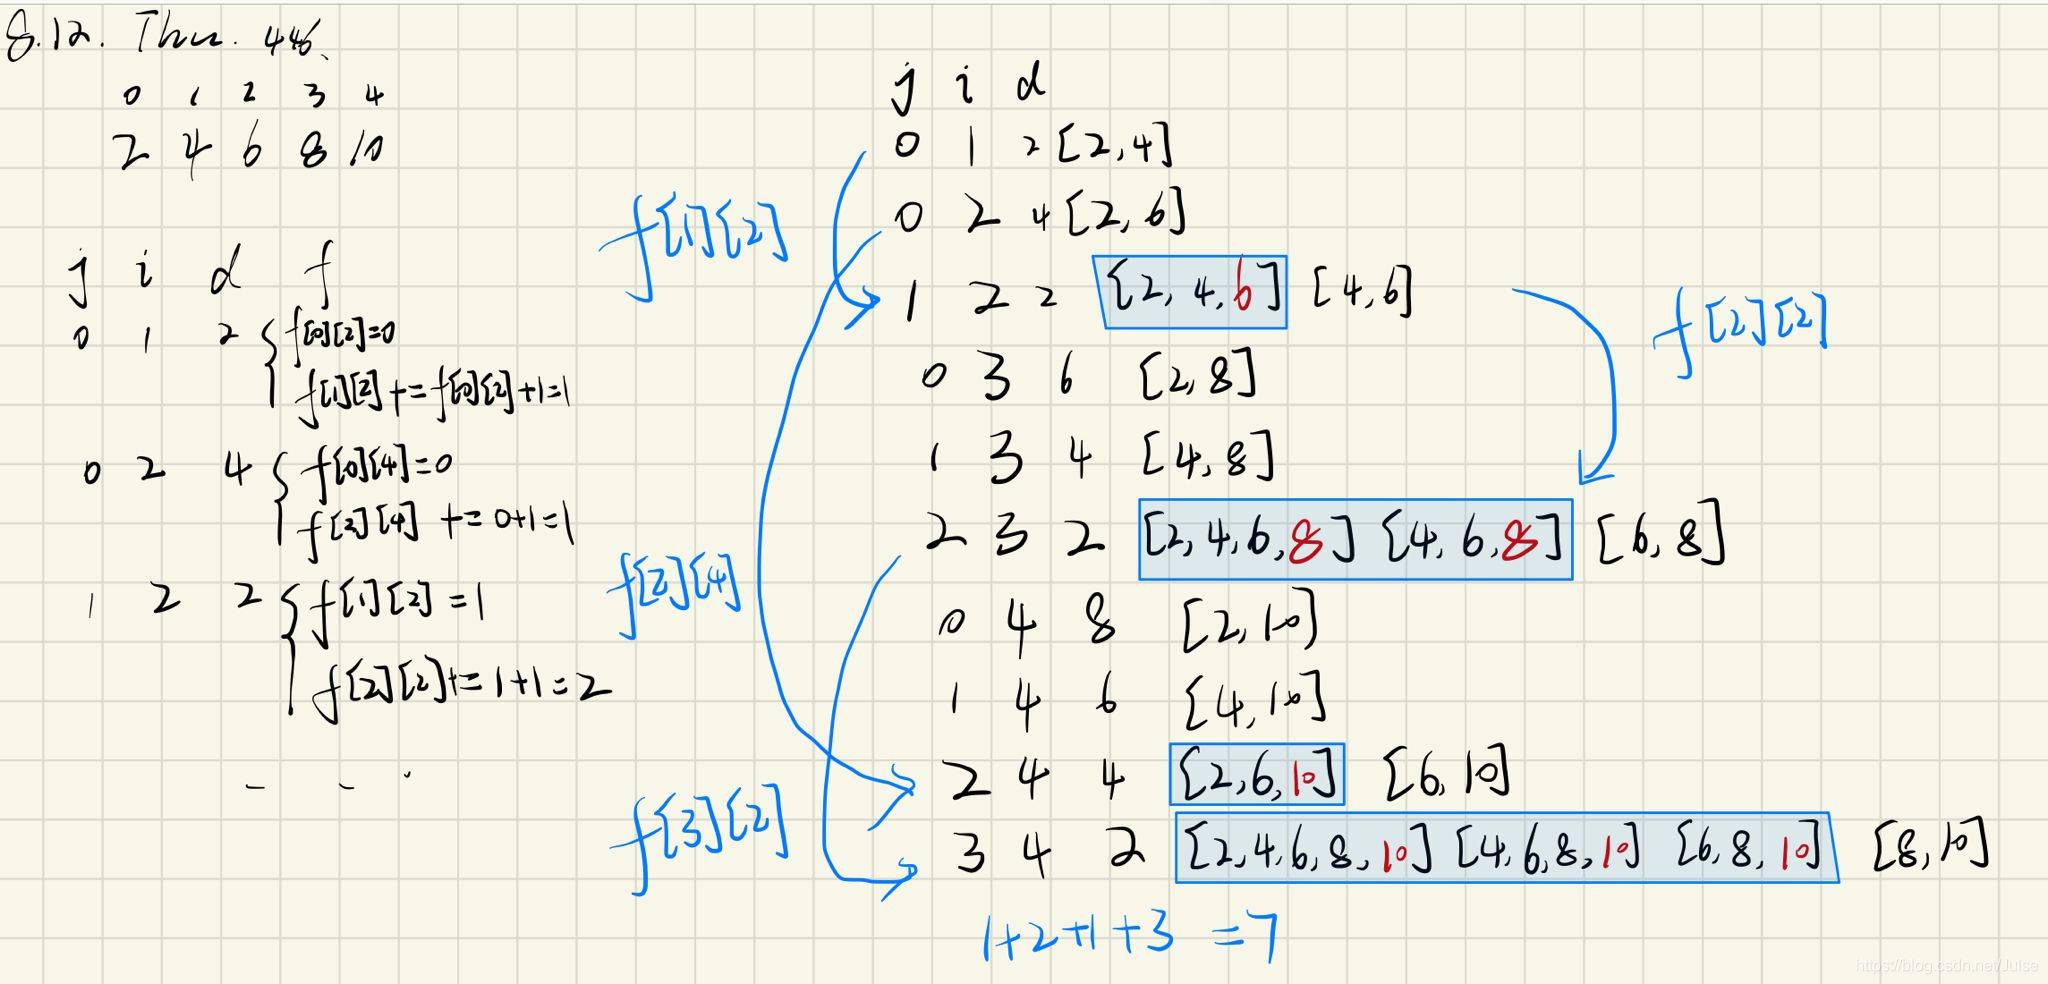 8.12. Thu. 446.
0 1 2 3 4
2 4 6 8 10
j i d f
0 1 2 { f[0][2]=0
f[1][2] += f[0][2]+1=1
0 2 4 { f[0][4]=0
f[2][4] += 0+1=1
1 2 2 { f[1][2]=1
f[2][2]+= 1+1=2
- - .
f[1][2]
f[2][4]
f[3][2]
j i d
0 1 2 [2,4]
0 2 4 [2,6]
1 2 2 [2,4,6] [4,6]
0 3 6 [2,8]
1 3 4 [4,8]
2 3 2 [2,4,6,8] [4,6,8] [6,8]
0 4 8 [2,10]
1 4 6 [4,10]
2 4 4 [2,6,10] [6,10]
3 4 2 [2,4,6,8,10] [4,6,8,10] [6,8,10] [8,10]
1+2+1+3 =7
f[2][2]
https://blog.csdn.net/Julse